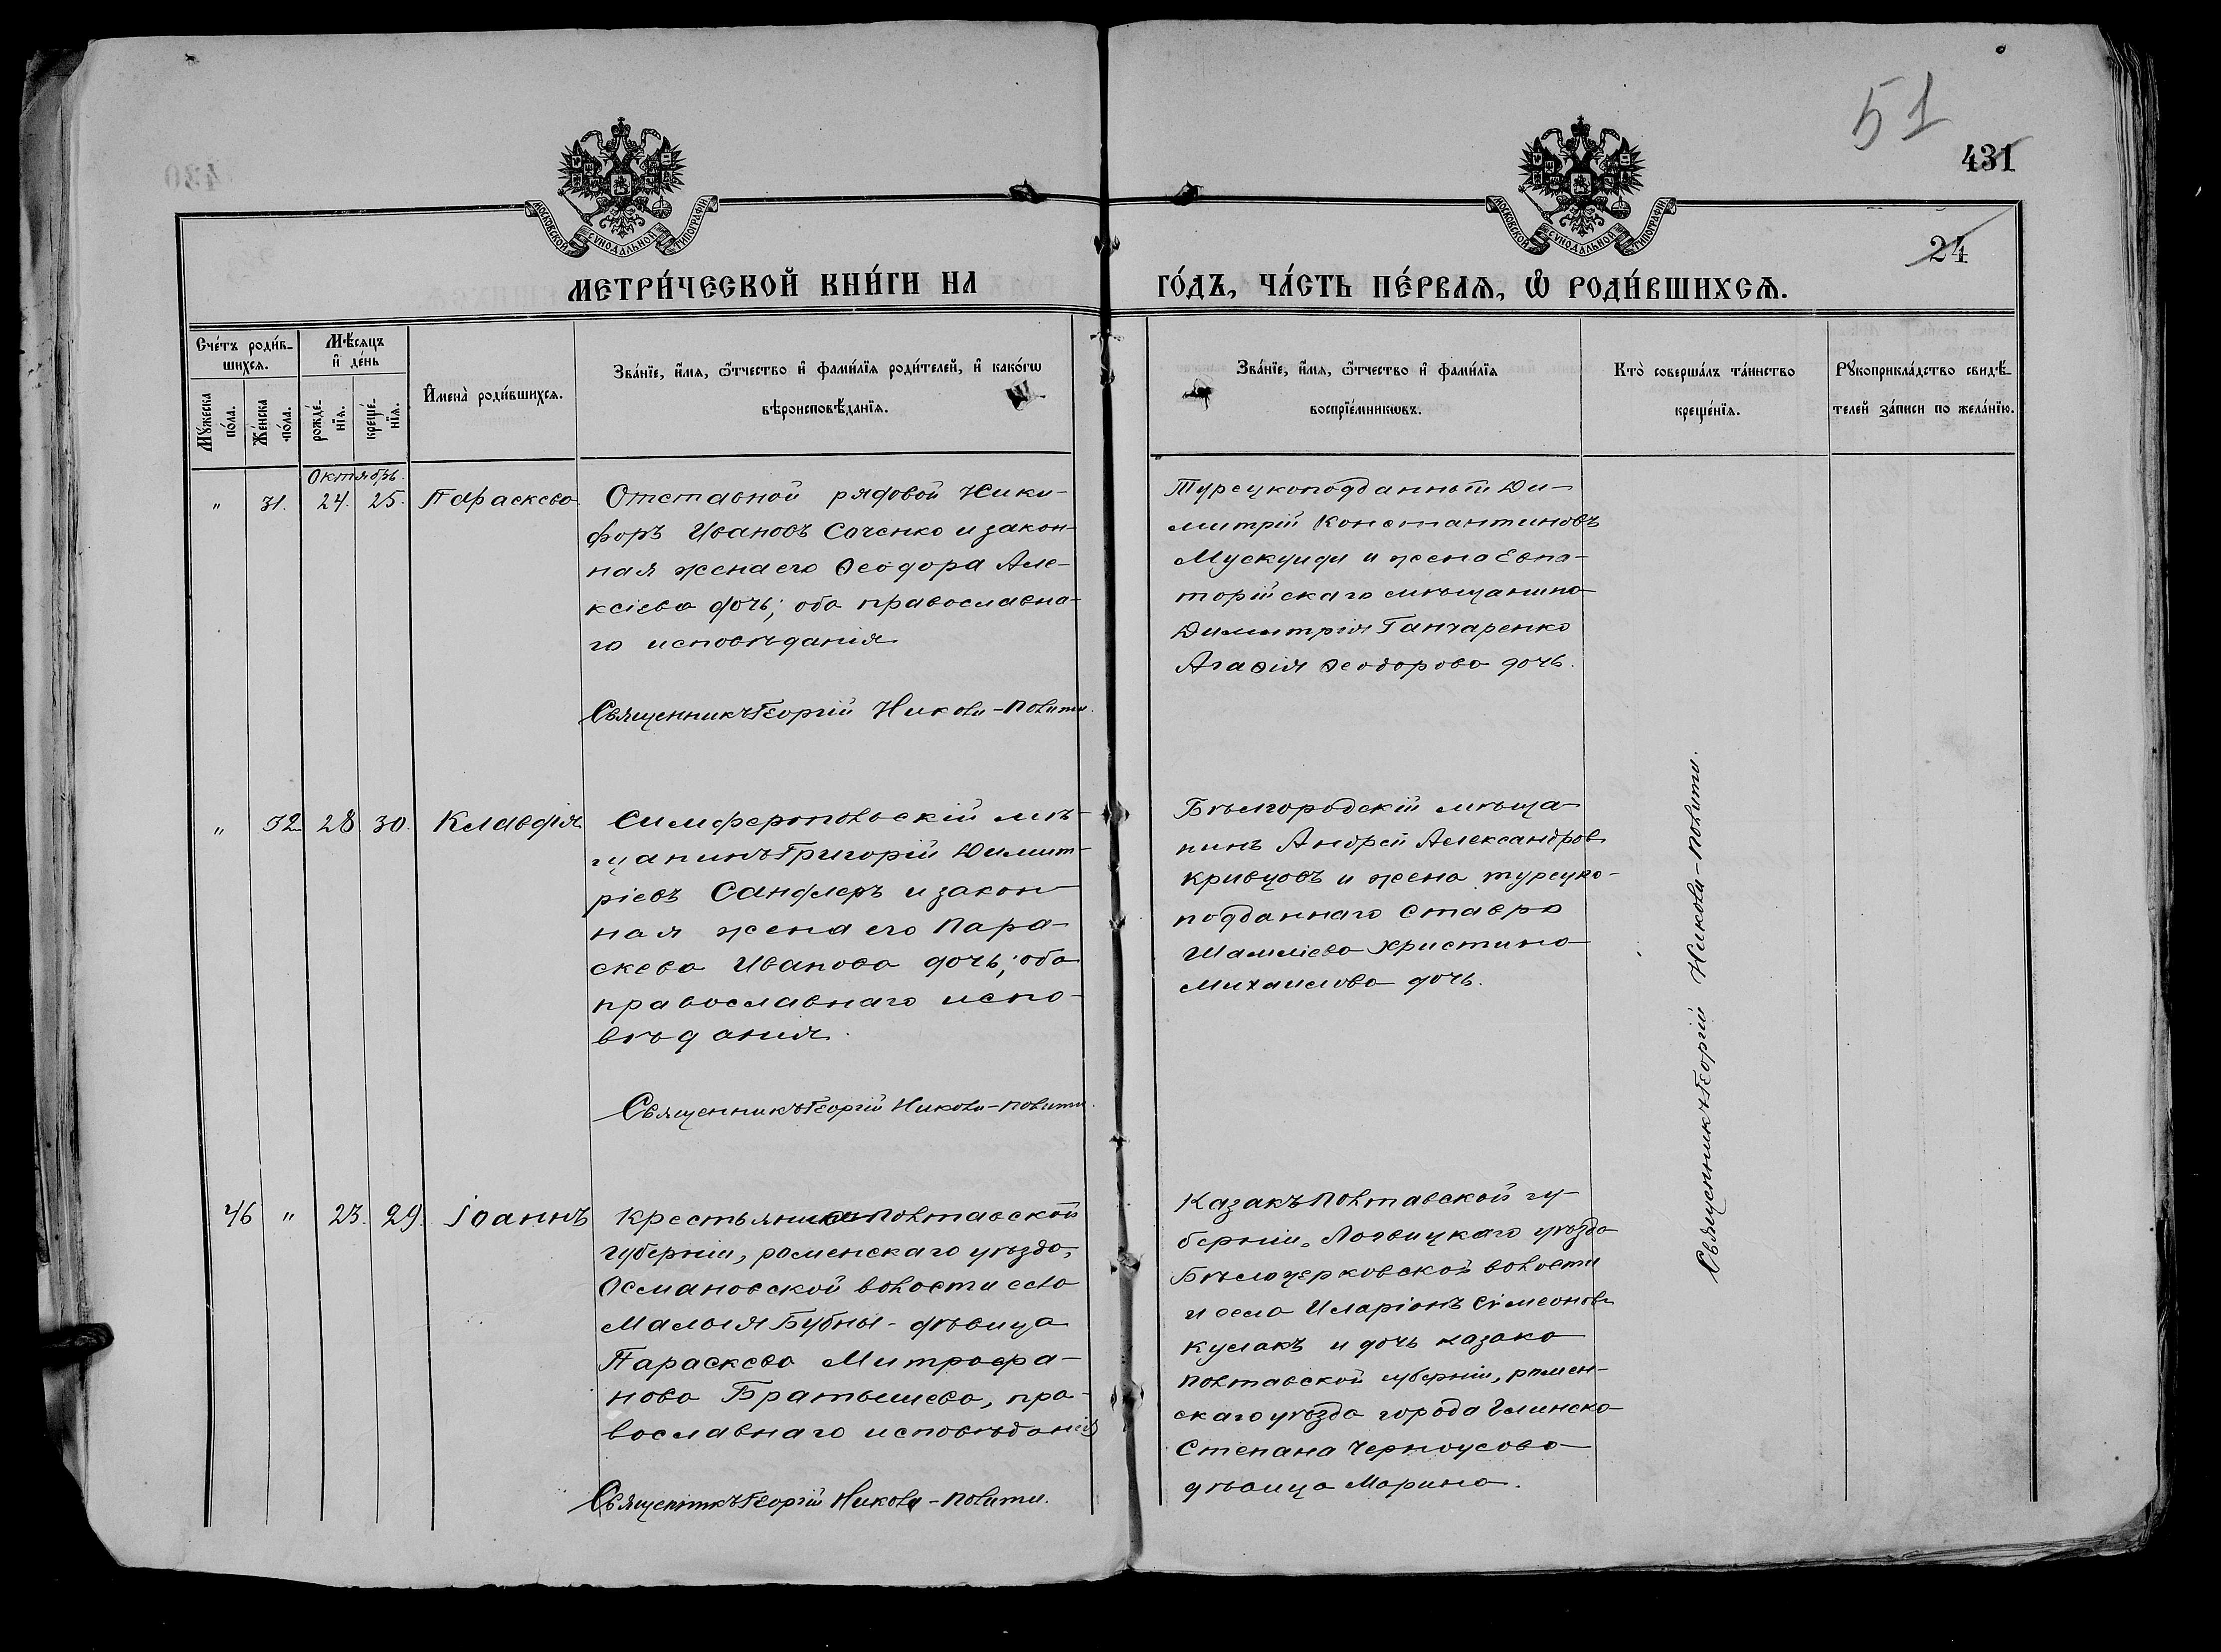 51
431
24
МОСКОВСКОЙ СѴНОДАЛЬНОЙ ТИПОГРАФІИ
МОСКОВСКОЙ СѴНОДАЛЬНОЙ ТИПОГРАФІИ
МЕТРИ́ЧЕСКОЙ КНИ́ГИ НА ГО́ДЪ, ЧА́СТЬ ПЕ́РВАѦ, Ѡ҆ РОДИ́ВШИХСѦ.
Сче́тъ роди́в-
шихсѧ.
Му́жеска по́ла.
Же́нска по́ла.
Мѣ́сѧцъ
и҆ де́нь
рожде́-
нїѧ.
креще́-
нїѧ.
И҆мена̀ роди́вшихсѧ.
Зва́нїе, и҆́мѧ, ѻ҆́тчество и҆ фами́лїѧ роди́телей, и҆ како́гѡ
вѣроисповѣ́данїѧ.
Зва́нїе, и҆́мѧ, ѻ҆́тчество и҆ фами́лїѧ
воспрїе́мникѡвъ.
Кто̀ соверша́лъ та́инство
креще́нїѧ.
Рꙋкоприкла́дство свидѣ́-
телей за́писи по жела́нїю.
Октябрь.
" 31. 24. 25. Параскева
Отставной рядовой Ники-
форъ Ивановъ Саченко и закон-
ная жена его Ѳеодора Але-
ксіева дочь; оба православна-
го исповѣданія.
Священникъ Георгій Николи-Полити.
Турецкоподданный Ди-
митрій Константиновъ
и жена Евпа-
торійскаго мѣщанина
Димитрія Ганчаренко
Агаѳія Ѳеодорова дочь.
" 32 28 30. Клавдія
Симферопольскій мѣ-
щанинъ Григорій Димит-
ріевъ Сандлеръ и закон-
ная жена его Пара-
скева Иванова дочь; оба
православнаго испо-
вѣданія.
Священникъ Георгій Николи-Полити.
Бѣлгородскій мѣща-
нинъ Андрей Александров
Кривцовъ и жена турецко-
подданнаго Ставра
Шамліева Христина
Михаилова дочь.
46 " 23. 29. Іоаннъ
Крестьянка Полтавской
губерніи, роменскаго уѣзда,
Османовской волости села
Малыя Бубны - дѣвица
Параскева Митрофа-
нова Братышева, пра-
вославнаго исповѣданія
Священникъ Георгій Николи-Полити.
Казакъ Полтавской гу-
берніи, Лохвицкаго уѣзда
Бѣлоцерковской волости
и села Иларіонъ Сѵмеонов
Кулакъ и дочь казака
Полтавской губерніи, ромен-
скаго уѣзда города Глинска
Степана Черноусова
дѣвица Марина.
Священникъ Георгій Николи-Полити.